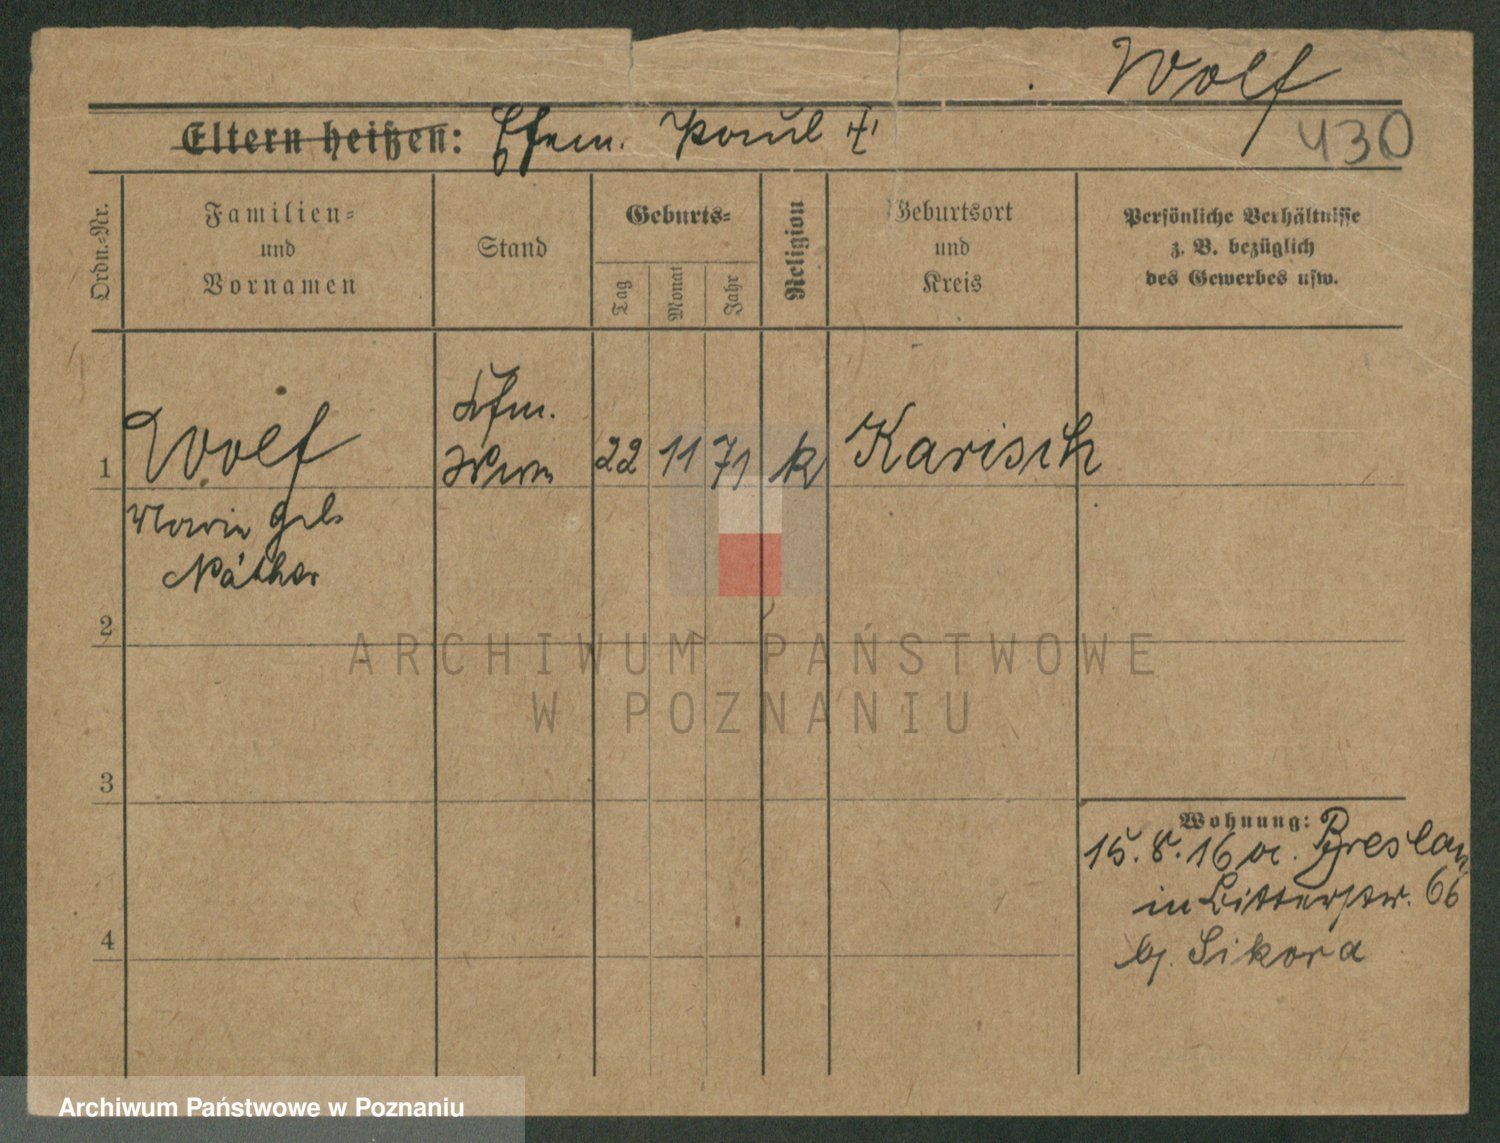 Wolf
430
Eltern heißen: Ehem. Paul †
Ordn.-Nr.
Familien-
und
Vornamen
Stand
Geburts-
Tag
Monat
Jahr
Religion
Geburtsort
und
Kreis
Persönliche Verhältnisse
z. B. bezüglich
des Gewerbes usw.
1
Wolf
Kfm.
Wwe
22
11
71
k
Karisch
Marie geb.
Näther
2
3
4
Wohnung:
15.8.16 Breslau
in 66
b. Sikora
ARCHIWUM PAŃSTWOWE
W POZNANIU
Archiwum Państwowe w Poznaniu